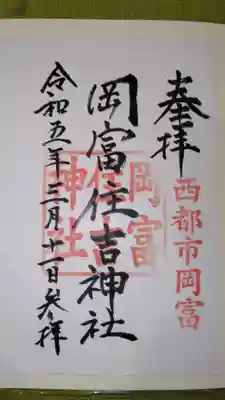 奉拝
西都市岡富
岡富住吉神社
岡富住吉神社
令和五年三月十一日参拝